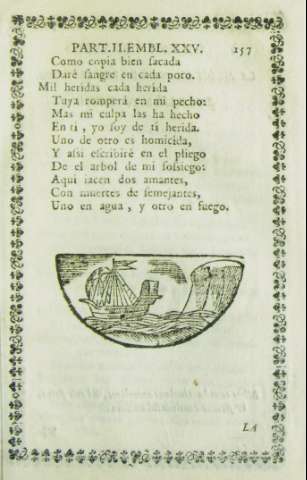 PART.II.EMBL. XXV. 157
Como copia bien sacada
Daré sangre en cada poro.
Mil heridas cada herida
Tuya romperá en mi pecho:
Mas mi culpa las ha hecho
En ti, yo soy de ti herida.
Uno de otro es homicida,
Y assi escribiré en el pliego
De el arbol de mi sossiego:
Aqui iacen dos amantes,
Con muertes de semejantes,
Uno en agua, y otro en fuego.
LA